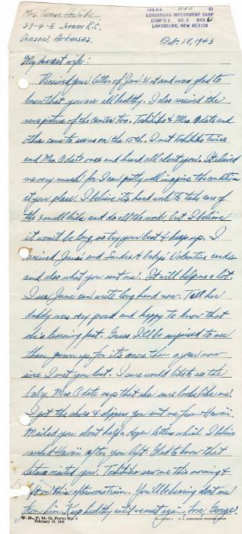 Mrs. George
37-4-E Jerome R.C.
Denson, Arkansas.
LORDSBURG INTERNMENT CAMP
LORDSBURG, NEW MEXICO
18, 1943
My dearest wife:
Received your letter of Jan 31st and was glad to
know that you are all healthy. I also received the
of the center too. Toshiko & Mrs. Odate and
other came to see us on the 15th. I met Toshiko twice
and Mrs. Odate once and heard all about you. It
me very much for I am pretty well the condition
at your place. I believe its hard work to take care of
the small kids and do all the work, but I believe
it won't be long so try your best & keep up. I
received Janie and Sandra & baby's Valentine cards
and also what you sent me. It will help me a lot.
I see Janie can write long hand now. Tell her
daddy was very proud and happy to know that
she's learning fast. Guess I'll be surprised to see
them grown up, for its more than a year now
since I met you last. I sure would like to see the
baby. Mrs. Odate says that she was looks like me!
I got the shoes & slippers you sent me from
you don't hope letter which I believe
after you left. Glad to know that
letter reached you. Toshiko saw me this morning &
left on this afternoon train. You'll be hearing about me
from him. Keep healthy until we meet again. Love, George!